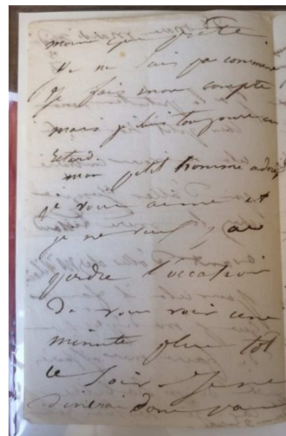 je ne sais pas comment
je fais mon compte
mais je suis toujours en
retard
mon petit homme adoré
je vous aime et
je ne veux pas
perdre l'occasion
de vous voir une
minute plus tôt
ce soir. Je ne
dinerai donc pas